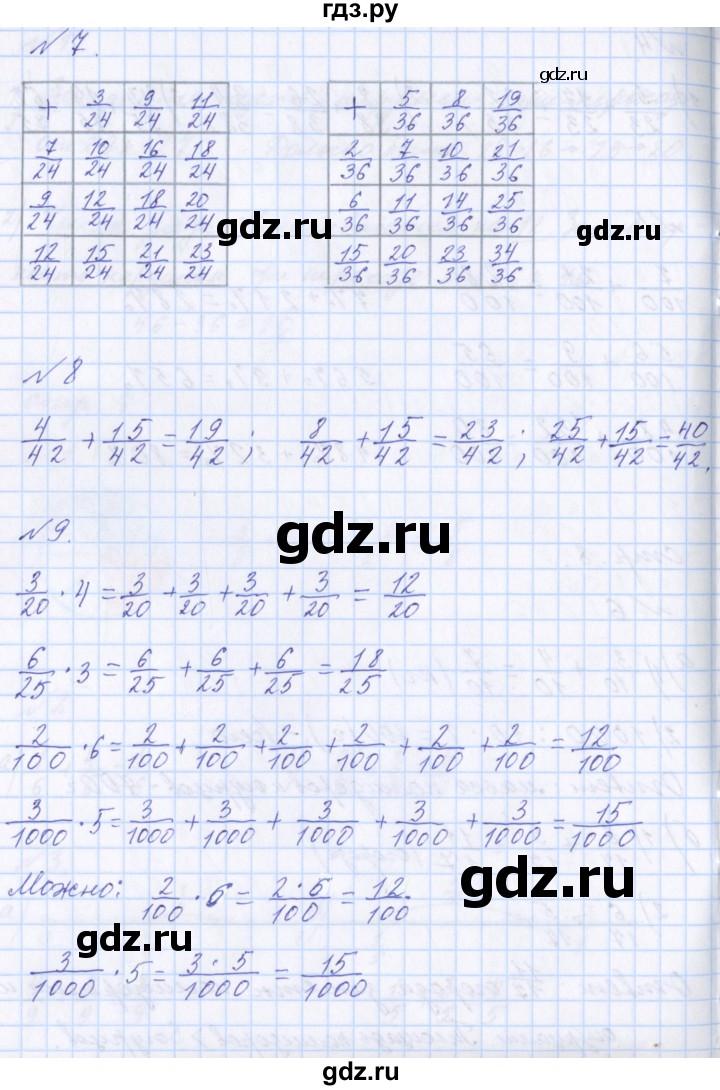 гдз.ру
№ 7.
gdz.ru
+ 3/24 9/24 11/24
7/24 10/24 16/24 18/24
9/24 12/24 18/24 20/24
12/24 15/24 21/24 23/24
+ 5/36 8/36 19/36
2/36 7/36 10/36 21/36
6/36 11/36 14/36 25/36
15/36 20/36 23/36 34/36
gdz.ru
gdz.ru
№ 8
4/42 + 15/42 = 19/42 ; 8/42 + 15/42 = 23/42 ; 25/42 + 15/42 = 40/42.
№ 9.
gdz.ru
3/20 · 4 = 3/20 + 3/20 + 3/20 + 3/20 = 12/20
6/25 · 3 = 6/25 + 6/25 + 6/25 = 18/25
2/100 · 6 = 2/100 + 2/100 + 2/100 + 2/100 + 2/100 + 2/100 = 12/100
3/1000 · 5 = 3/1000 + 3/1000 + 3/1000 + 3/1000 + 3/1000 = 15/1000
Можно: 2/100 · 6 = 2·6/100 = 12/100.
gdz.ru
gdz.ru
3/1000 · 5 = 3·5/1000 = 15/1000
gdz.ru